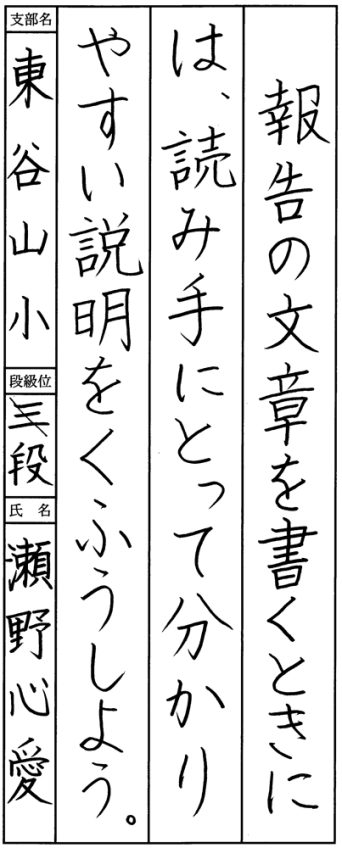 報告の文章を書くときに
は、読み手にとって分かり
やすい説明をくふうしよう。
支部名
東谷山小
段級位
三段
氏名
瀬野心愛